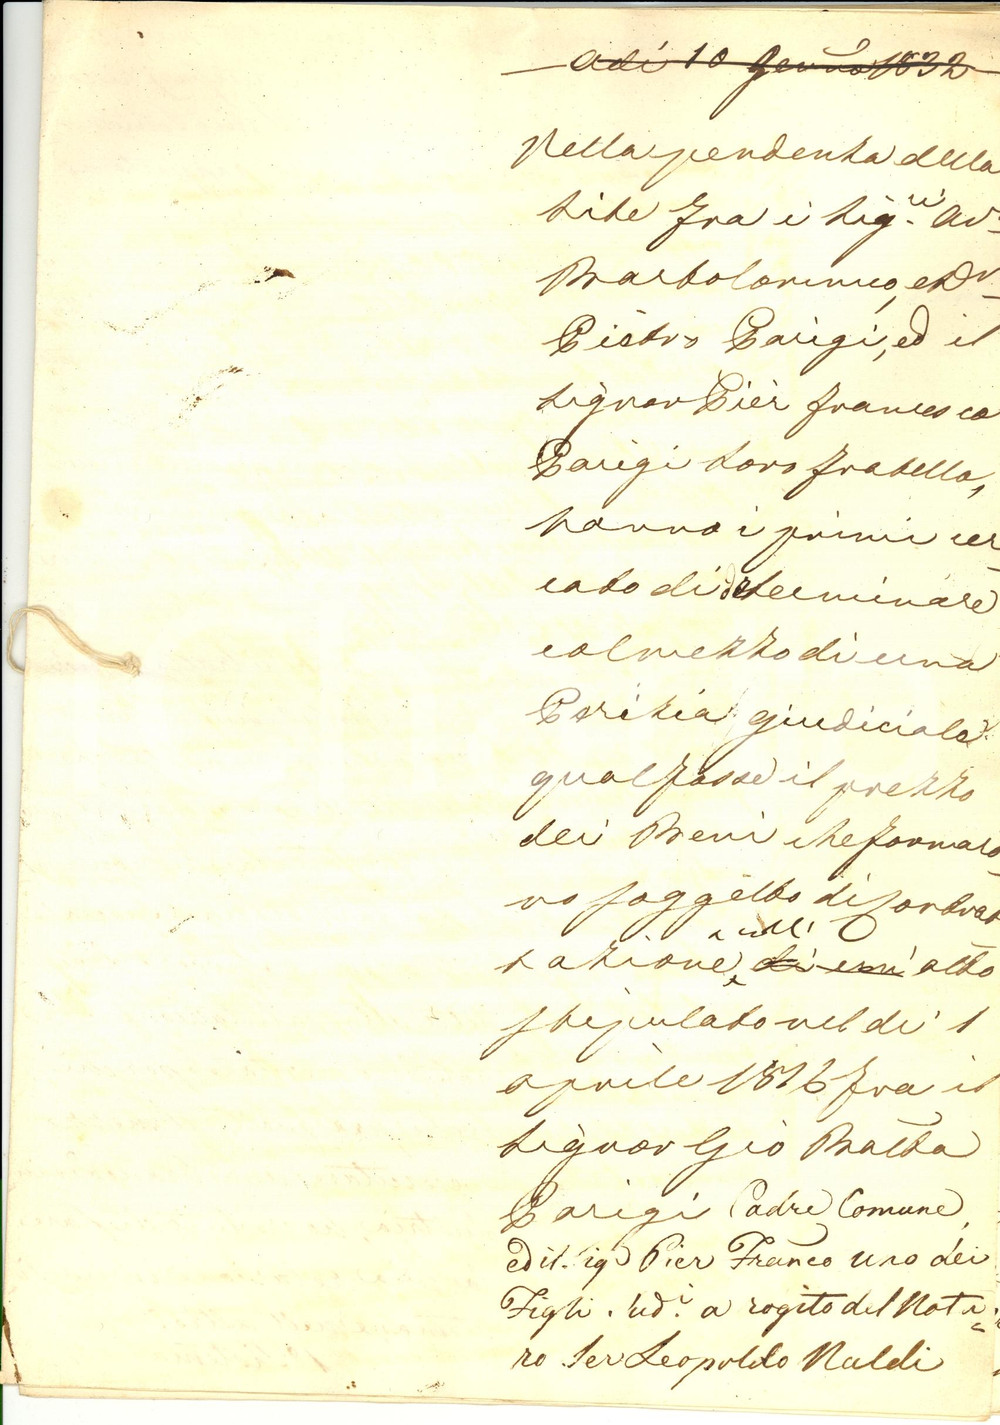 Adi 10 Gennō 1832
Nella pendenza della
Lite fra i Sig.ri Av.
Bartolommeo, e Dr
Pietro Parigi, ed il
Signor Pier Francesco
Parigi Loro fratello,
hanno i primi cer
cato di determinare
col mezzo di una
Perizia giudiciale
qual fosse il prezzo
dei Beni che formaro
no soggetto di Contrat
tazione, di un' nell' atto
stipulato nel di' 1
aprile 1816 fra il
Signor Gio Batta
Parigi Padre Comune,
ed il Sig. Pier Franco uno dei
Figli. Ud.i a rogito del Nota
ro Ser Leopoldo Naldi